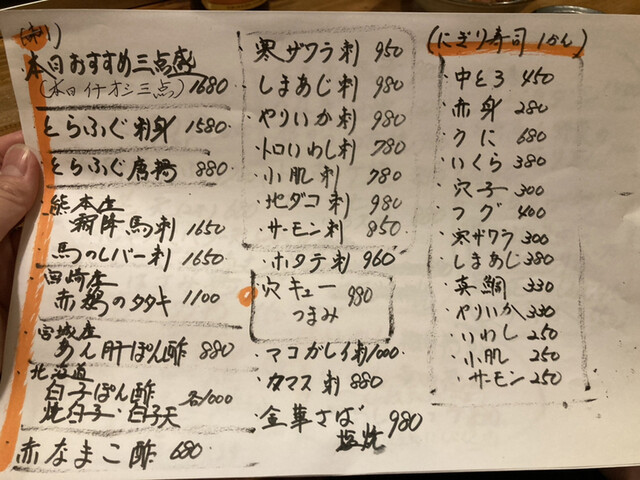 本日おすすめ三点盛
(本日イチオシ三点) 1680
とらふぐ刺身 1580
とらふぐ唐揚 880
熊本産
霜降馬刺 1650
馬のレバー刺 1650
宮崎産
赤鶏のタタキ 1100
宮城産
あん肝ぽん酢 880
北海道
白子ぽん酢
焼白子・白子天 各1000
赤なまこ酢 680
寒ザワラ刺 950
しまあじ刺 980
やりいか刺 980
トロいわし刺 780
小肌刺 780
地ダコ刺 980
サーモン刺 850
ホタテ刺 960
穴キュー
つまみ 980
マコガレイ刺 1000
タマス刺 880
金華さば 980
塩焼
(にぎり寿司 1かん)
中とろ 450
赤身 280
うに 680
いくら 380
穴子 300
フグ 400
寒ザワラ 300
しまあじ 380
真鯛 330
やりいか 330
いわし 250
小肌 250
サーモン 250